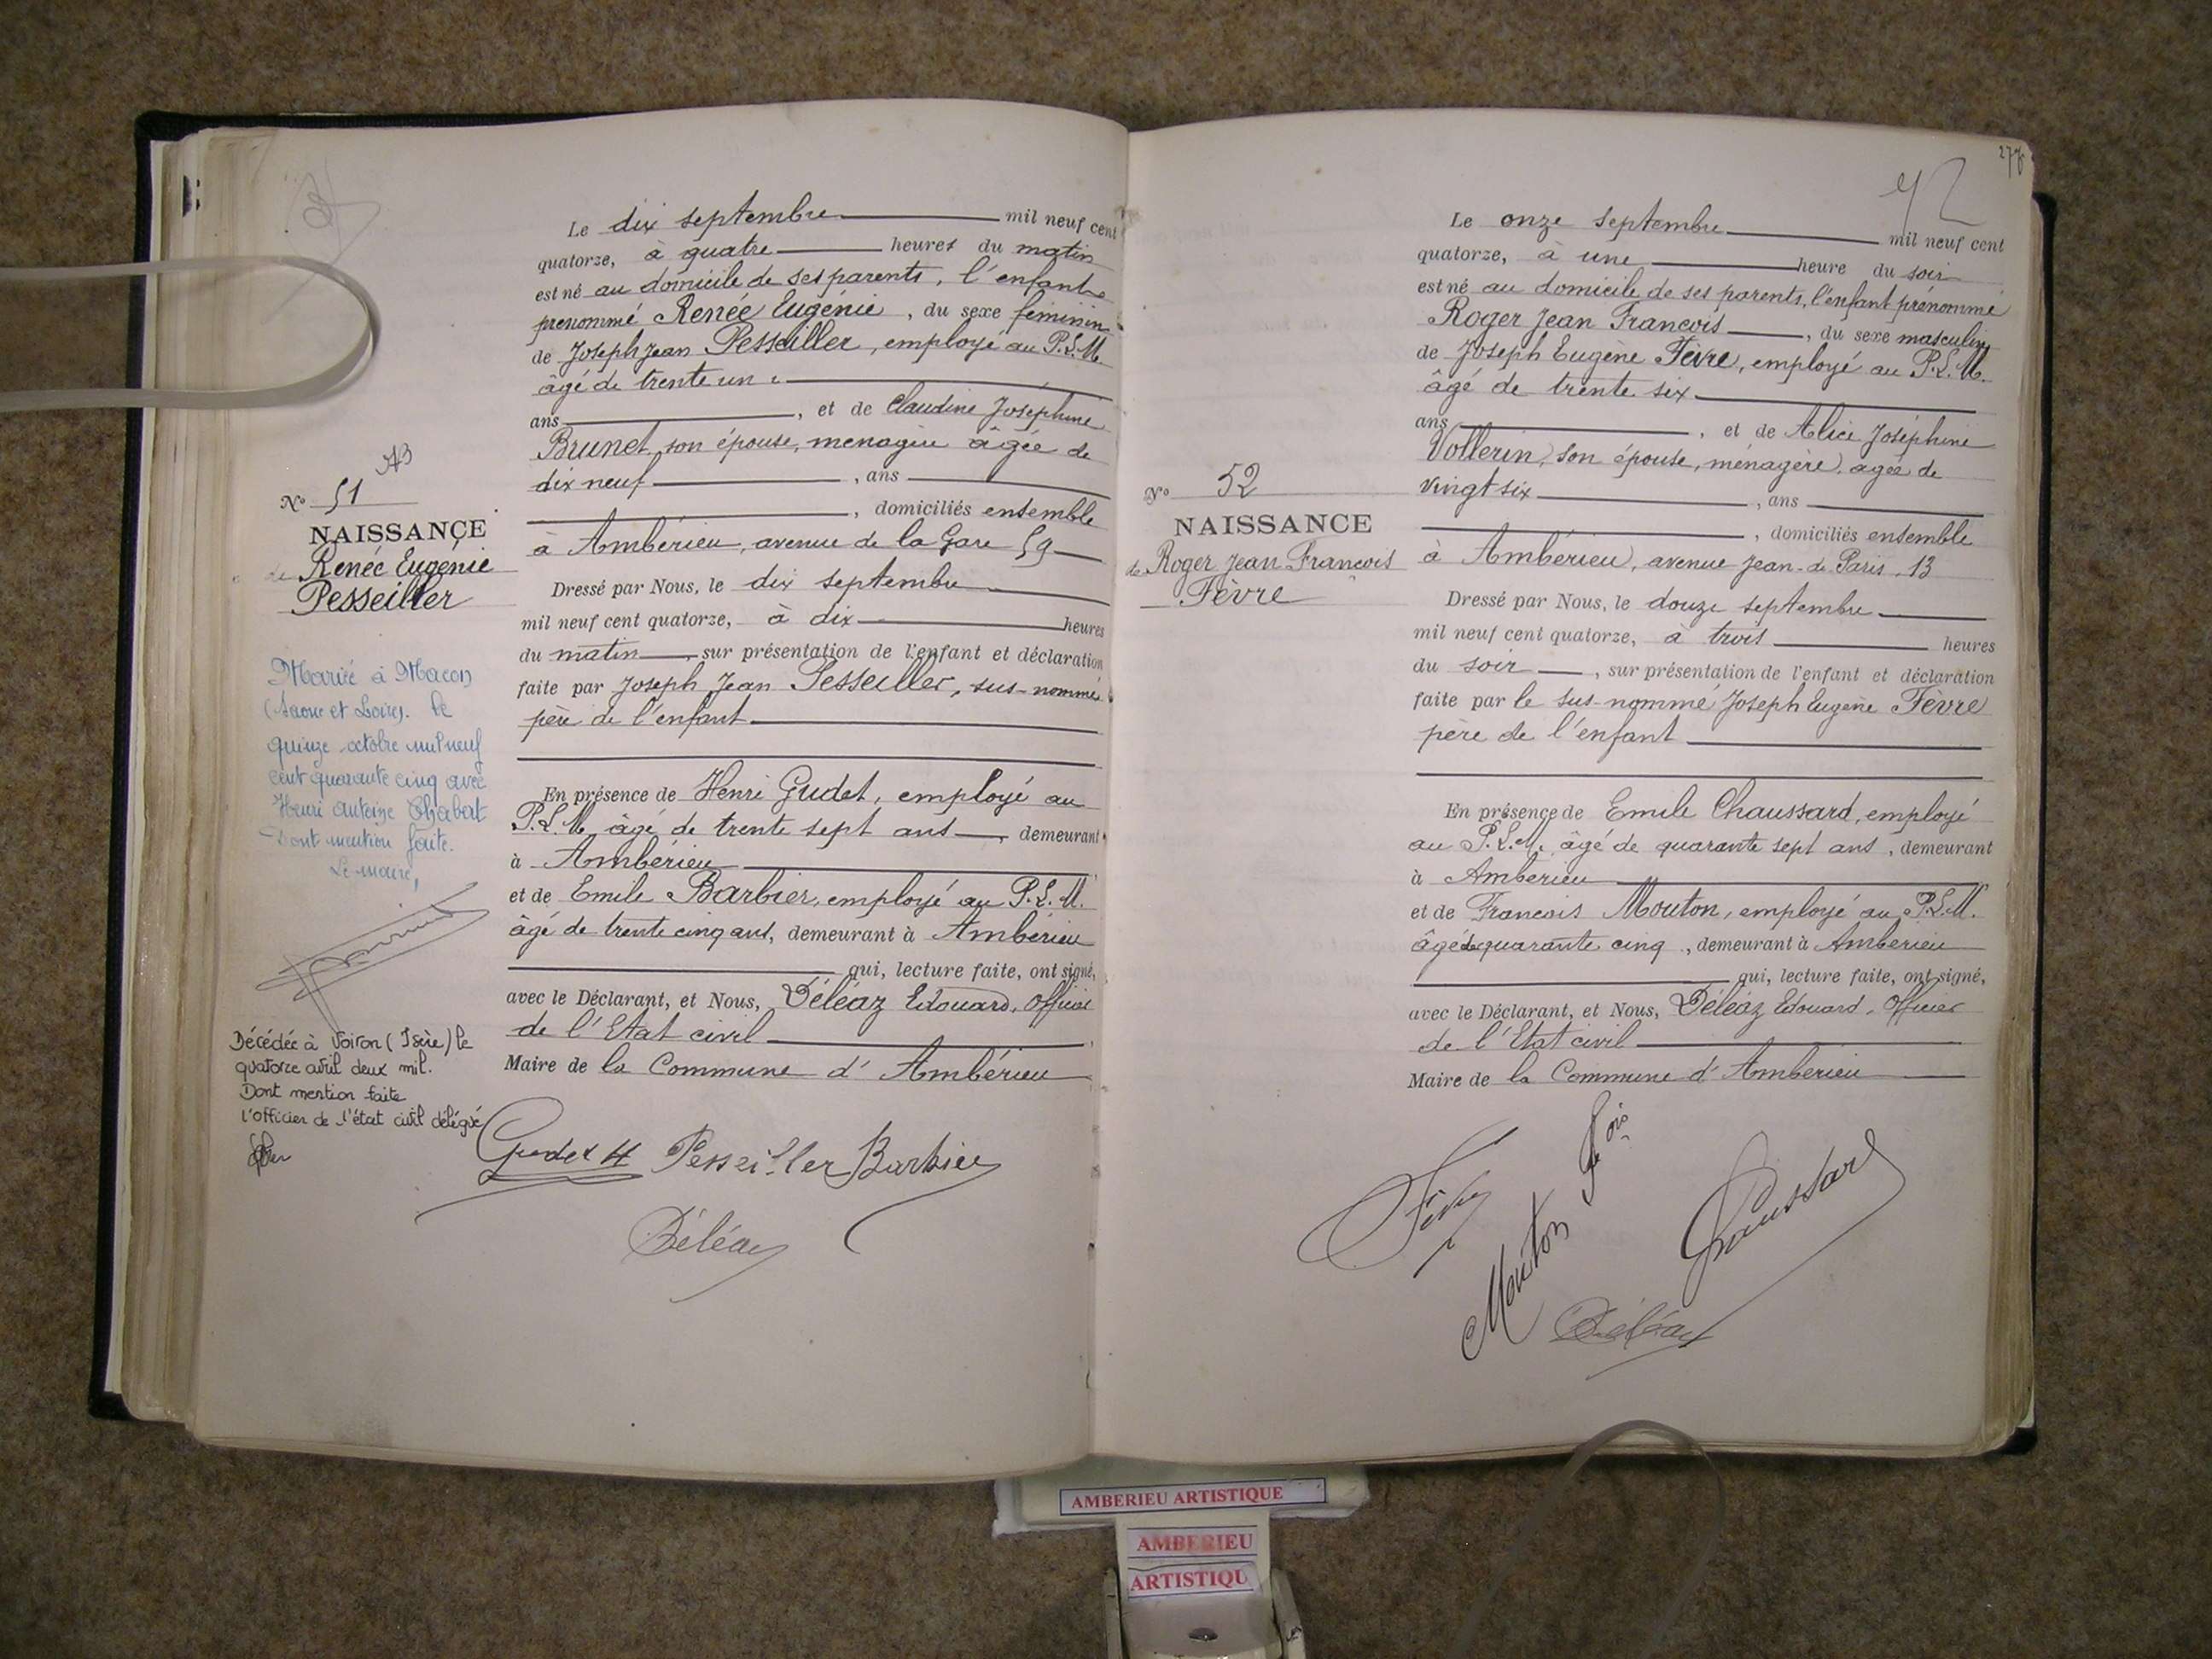 N° 51
NAISSANCE
de Renée Eugénie
Pesseiller
Mariée à Macon
(Saone et Loire). le
quinze octobre mil neuf
cent quarante cinq avec
Henri Antoine Chabert
Dont mention faite.
Le maire,
Décédée à Voiron (Isère) le
quatorze avril deux mil.
Dont mention faite
l'officier de l'état civil délégué
Le dix septembre mil neuf cent
quatorze, à quatre heures du matin
est né au domicile de ses parents, l'enfant
prénommé Renée Eugénie, du sexe féminin
de Joseph Jean Pesseiller, employé au P.L.M.
âgé de trente un
ans, et de Claudine Joséphine
Brunet, son épouse, ménagère âgée de
dix neuf, ans
, domiciliés ensemble
à Ambérieu, avenue de la Gare 59
Dressé par Nous, le dix septembre
mil neuf cent quatorze, à dix heures
du matin, sur présentation de l'enfant et déclaration
faite par Joseph Jean Pesseiller, sus-nommé
père de l'enfant
En présence de Henri Gudet, employé au
P.L.M. âgé de trente sept ans, demeurant
à Ambérieu
et de Emile Barbier, employé au P.L.M.
âgé de trente cinq ans, demeurant à Ambérieu
qui, lecture faite, ont signé,
avec le Déclarant, et Nous, Déléaz Edouard, Officier
de l'Etat civil
Maire de la Commune d'Ambérieu
Gudet H Pesseiller Barbier
Déléaz
276
52
N° 52
NAISSANCE
de Roger Jean Francois
Fèvre
Le onze septembre mil neuf cent
quatorze, à une heure du soir
est né au domicile de ses parents, l'enfant prénommé
Roger Jean Francois, du sexe masculin
de Joseph Eugène Fèvre, employé au P.L.M.
âgé de trente six
ans, et de Alice Joséphine
Vollerin, son épouse, ménagère, agée de
vingt six, ans
, domiciliés ensemble
à Ambérieu, avenue Jean-de Paris, 13
Dressé par Nous, le douze septembre
mil neuf cent quatorze, à trois heures
du soir, sur présentation de l'enfant et déclaration
faite par le sus-nommé Joseph Eugène Fèvre
père de l'enfant
En présence de Emile Chaussard, employé
au P.L.M. âgé de quarante sept ans, demeurant
à Ambérieu
et de Francois Mouton, employé au P.L.M.
âgé de quarante cinq, demeurant à Ambérieu
qui, lecture faite, ont signé,
avec le Déclarant, et Nous, Déléaz Edouard, Officier
de l'Etat civil
Maire de la Commune d'Ambérieu
Fèvre
Mouton Fois
Chaussard
Déléaz
AMBERIEU ARTISTIQUE
AMBERIEU
ARTISTIQU